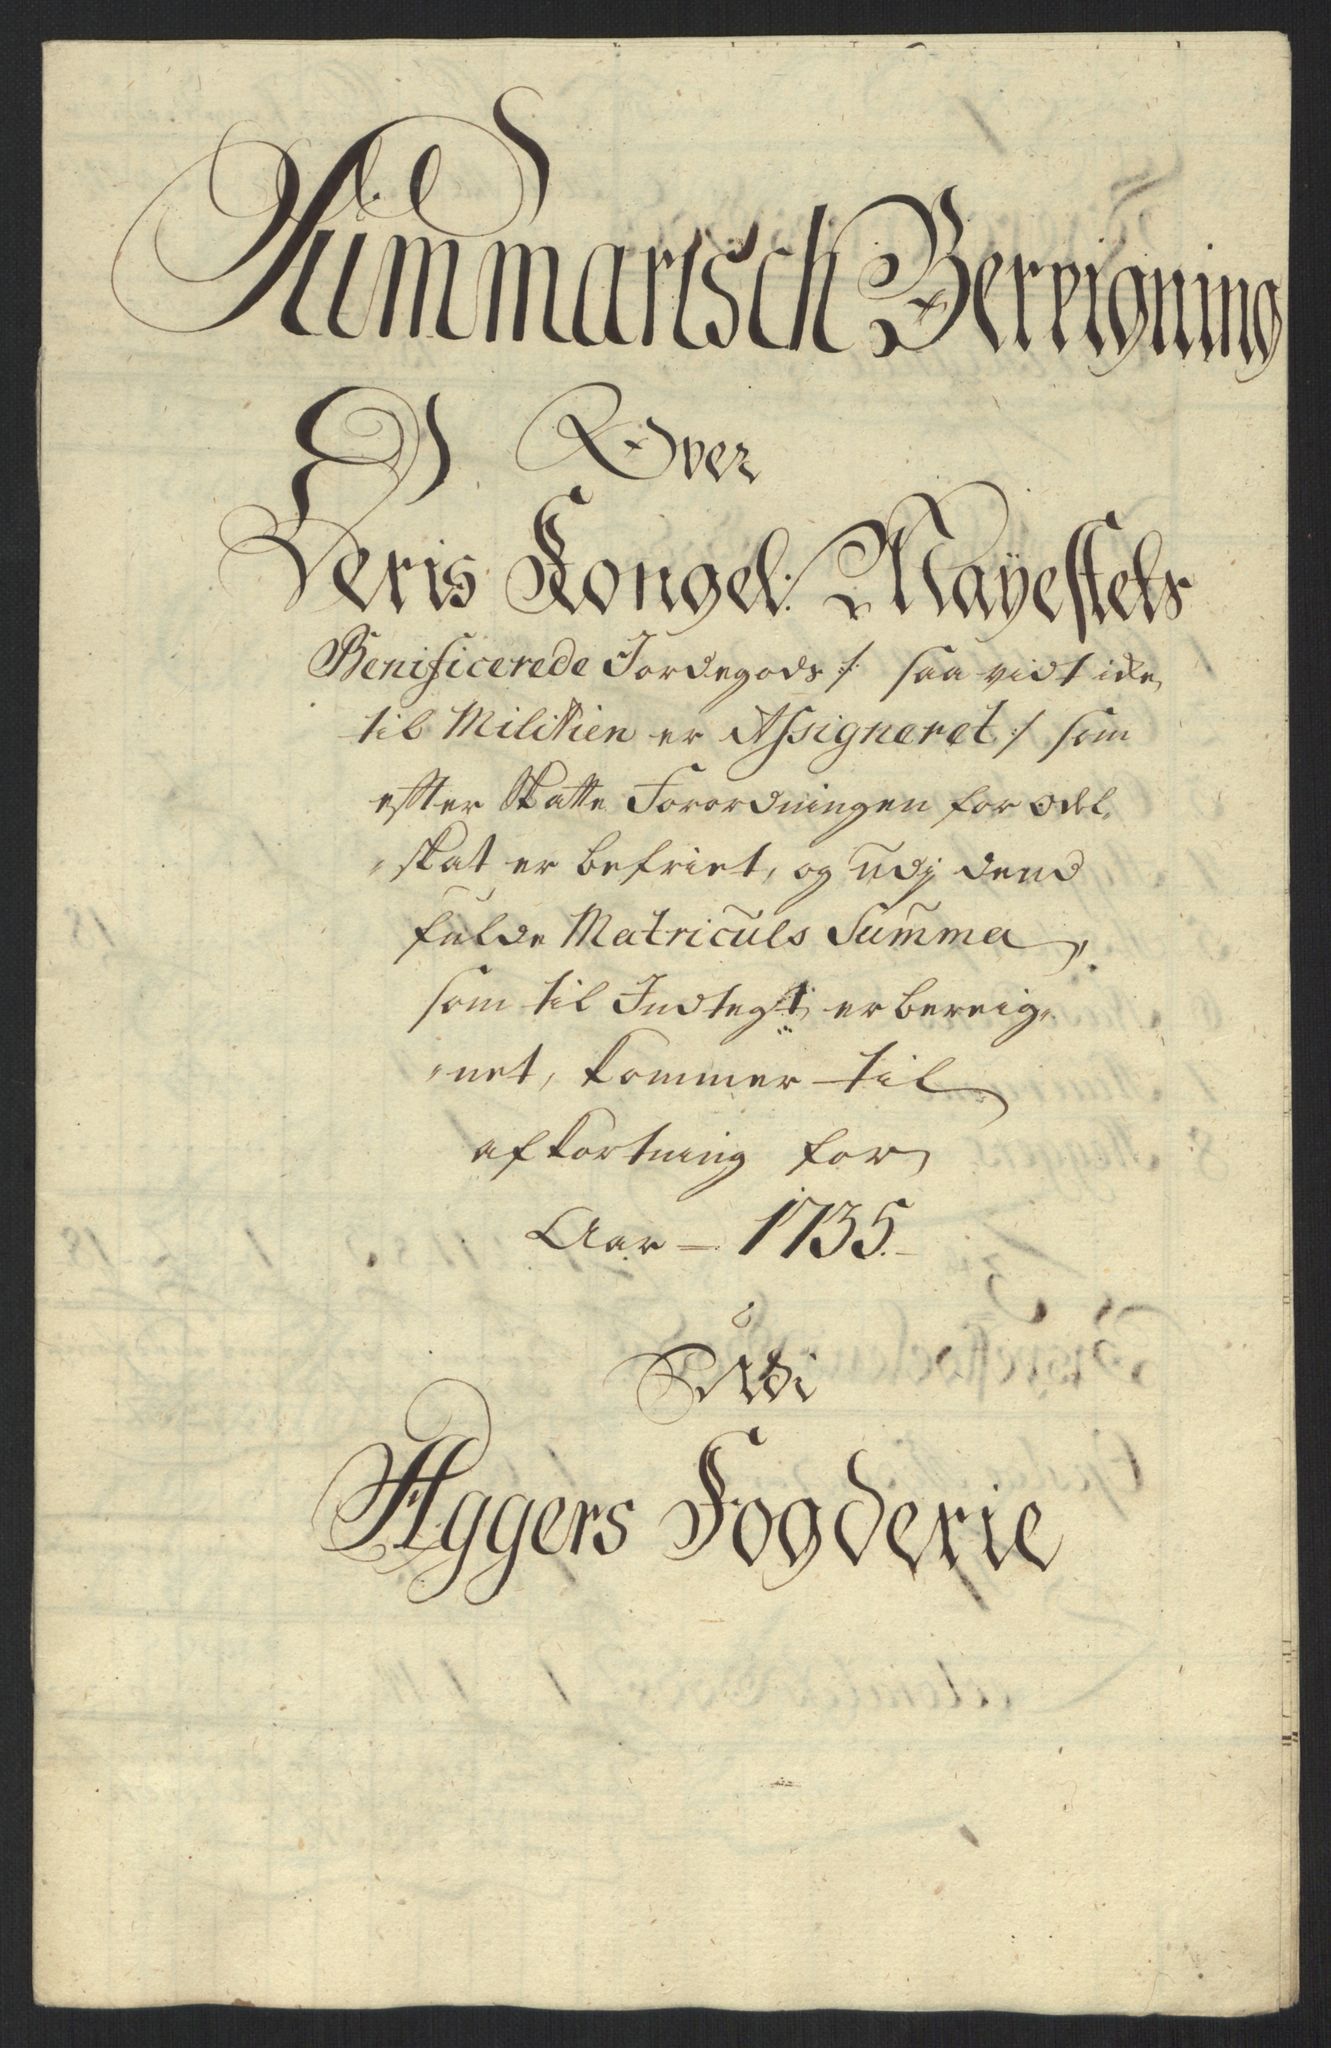 Summarisch Bereigning
Over
Deris Kongel: Mayestets
Benificerede Jordegods :/ saa vidt icke
til Militien er Assigneret :/ som
effter Skatte Forordningen for odel,
„skat er befriet, og udj dend
fulde Matriculs Summa,
som til Indtegt er bereig„
„net, kommer til
afkortning for
Aar — 1735.
Udi
Aggers Fogderie